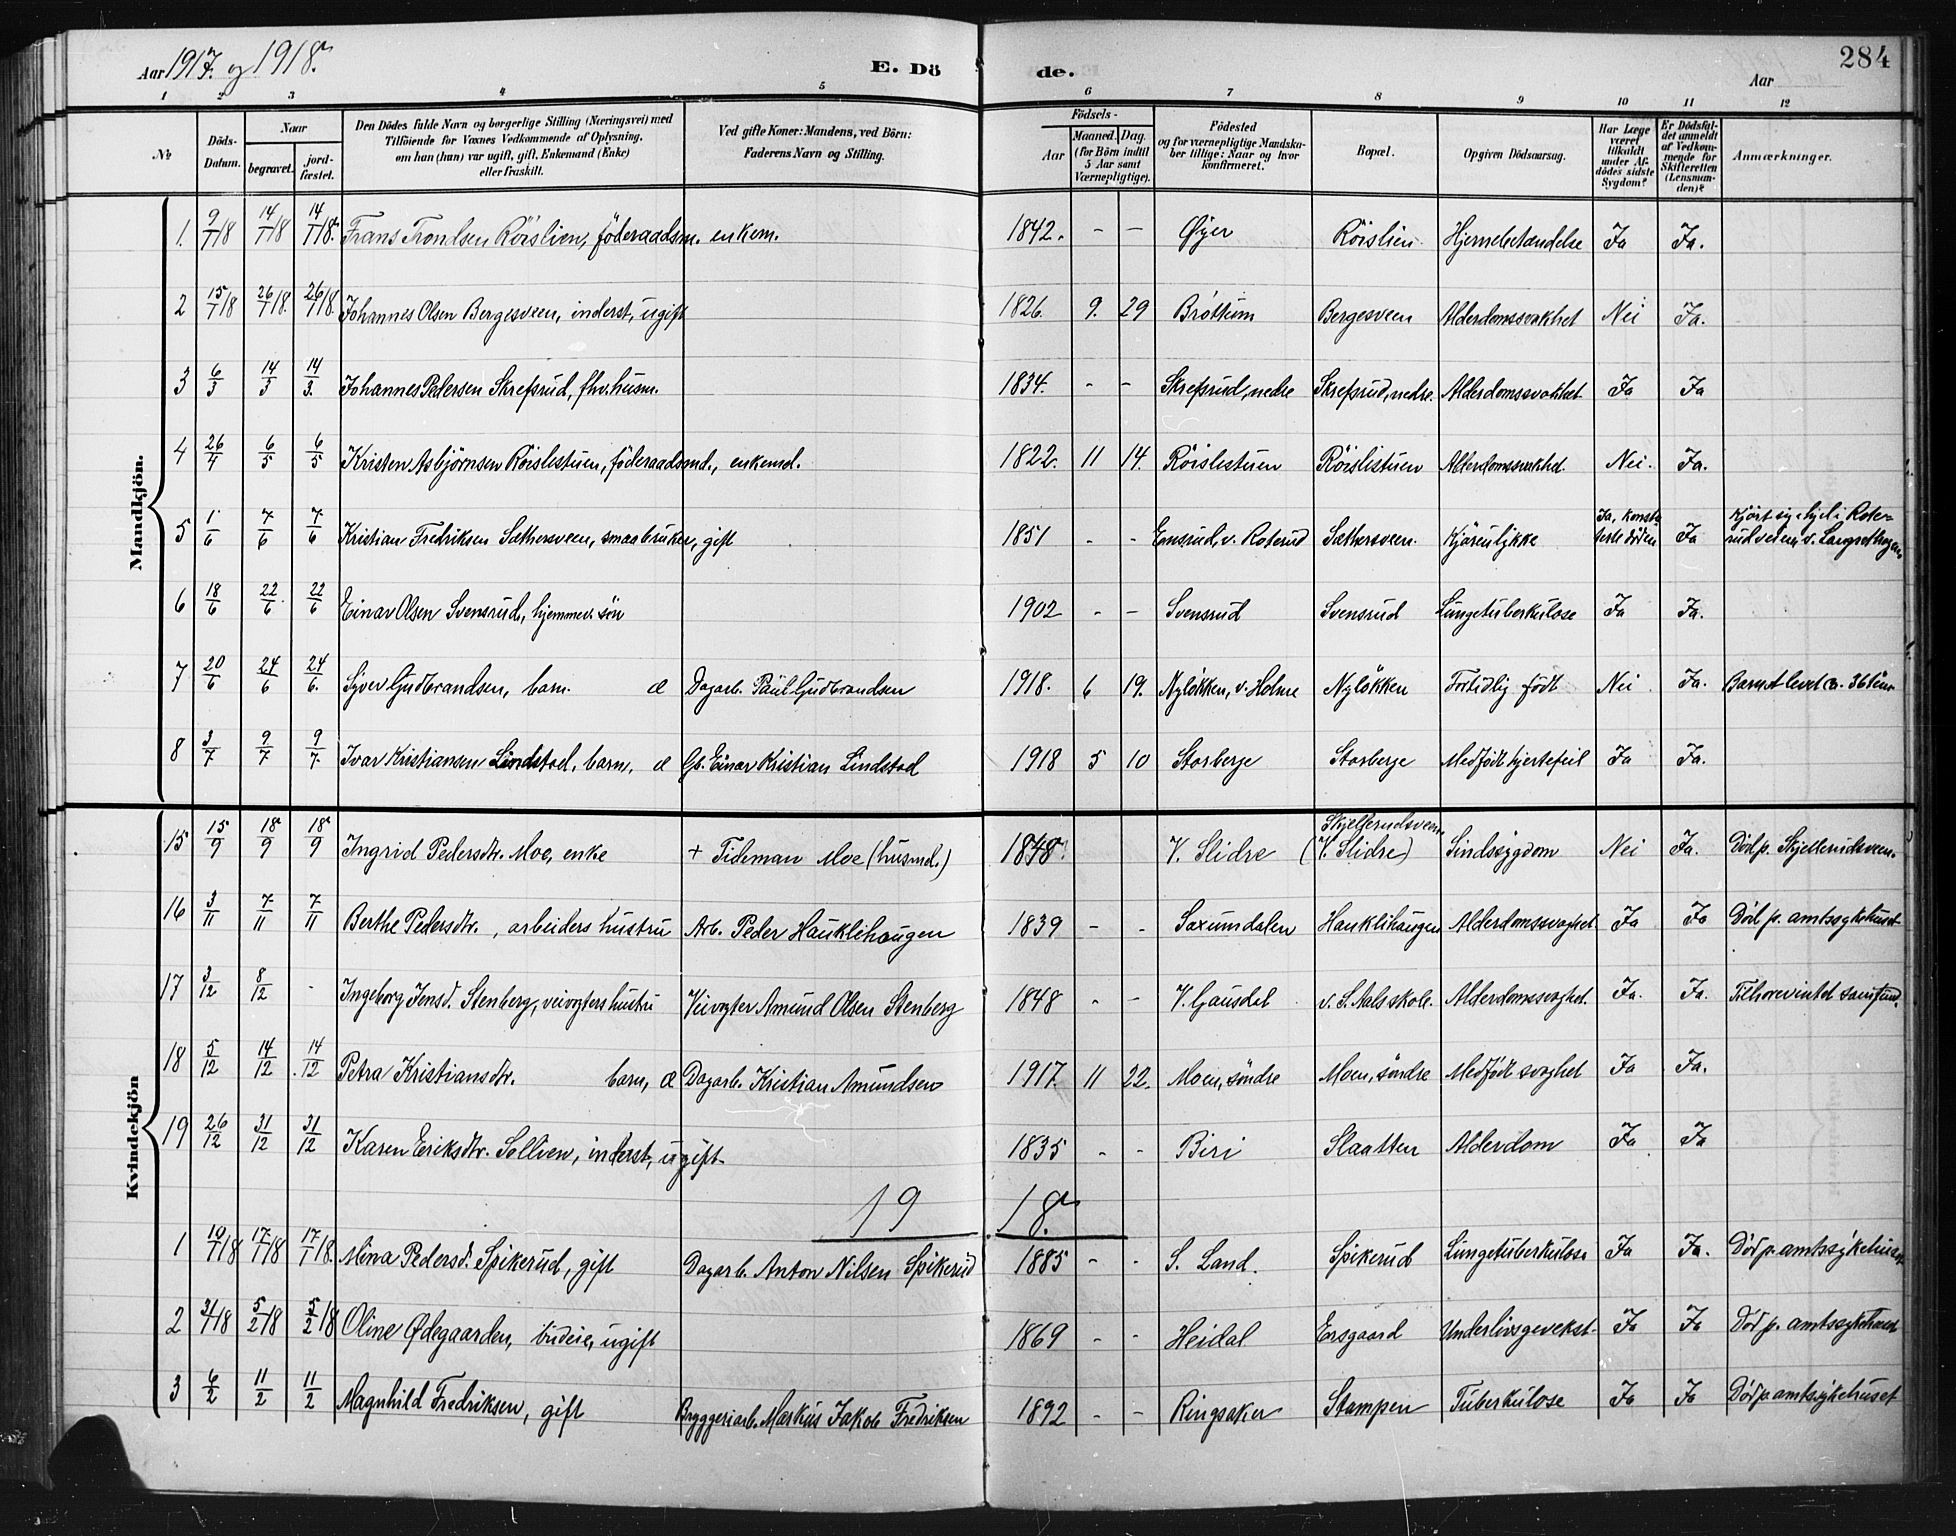 Aar 1917. og 1918. E. Dö de. Aar 284
1 2 3 4 5 6 7 8 9 10 11 12
№ Döds-Datum. Naar begravet. jordfæstet. Den Dödes fulde Navn og borgerlige Stilling (Næringsvei) med Tilföiende for Voxnes Vedkommende af Oplysning, om han (hun) var ugift, gift, Enkemand (Enke) eller fraskilt. Ved gifte Koner: Mandens, ved Börn: Faderens Navn og Stilling. Födsels- Aar Maaned. Dag. (for Börn indtil 5 Aar samt Værnepligtige). Födested og for værnepligtige Mandskaber tillige: Naar og hvor konfirmeret. Bopæl. Opgiven Dödsaarsag. Har Læge været tilkaldt under Afdödes sidste Sygdom? Er Dödsfaldet anmeldt af Vedkommende for Skifteretten (Lensmanden)? Anmærkninger.
Mandkjön.
1. 9/1 18 14/1 18 14/1 18. Frans Trondsen Röislien, föderaadsm. enkem. 1842. - - Øyer Röislien Hjernebetændelse Ja Ja.
2 15/1 18 26/1 18. 26/1 18. Johannes Olsen Bergesveen, inderst, ugift 1826. 9. 29 Bröttum Bergesveen Alderdomssvakhet Nei Ja.
3 6/3 14/3 14/3. Johannes Pedersen Skrefsrud, fhv. husm. 1834. - - Skrefsrud, nedre Skrefsrud, nedre. Alderdomssvakhet Ja Ja
4 26/4 6/5 6/5 Kristen Asbjörnsen Röislistuen, föderaadsmd., enkemd. 1822. 11 14. Röislistuen Röislistuen Alderdomssvakhet Nei. Ja.
5 1/6 7/6 7/6 Kristian Fredriksen Sæthersveen, smaabruker, gift 1851 - - Emsrud, v. Roterud Sæthersveen. Kjöreulykke Ja, konsta- terte döden Ja Kjört sig ihjel i Roterudveien v.
6 18/6 22/6 22/6 Einar Olsen Svensrud, hjemmev. sön 1902 - - Svensrud Svensrud Lungetuberkulose Ja Ja.
7 20/6 24/6 24/6. Syver Gudbrandsen, barn. æ Dagarb. Paul Gudbrandsen 1918. 6 19. Nylökken, v. Holme Nylökken Fortidlig födt Nei Ja. Barnet levet ca. 36 timer
8 3/7 9/7 9/7. Ivar Kristiansen Lindstad, barn, æ Gb. Einar Kristian Lindstad 1918 5 10 Storberge Storberge Medfödt hjertefeil Ja Ja.
Kvindekjön
15 15/9 18/9 18/9 Ingrid Pedersdtr. Moe, enke + Tideman Moe (husmd.) 1848 V. Slidre Skjellerudsveen (V. Slidre) Sindssygdom Nei Ja. Död p. Skjellerudsveen.
16 3/11 7/11 7/11 Berthe Pedersdtr., arbeiders hustru Arb. Peder Hauklihaugen 1839 - - Saxumdalen Hauklihaugen Alderdomssvaghet Ja Ja Död p. amtssykehuset
17 3/12 8/12 - Ingeborg Jensd. Stenberg, veivogters hustru Veivogter Amund Olsen Stenberg 1848 - - V. Gausdal v. S. Aals skole. Alderdomssvaghet. Ja. Ja. Tilhorer intet samfund.
18 5/12 14/12 14/12 Petra Kristiansdtr. barn, æ Dagarb. Kristian Amundsen 1917. 11 22. Moen, söndre Moen, söndre Medfödt svaghet Ja Ja.
19 26/12 31/12 31/12 Karen Eriksdtr. Sollien, inderst, ugift 1835 - - Biri Slaatten Alderdom Ja Ja
19 18.
1 10/1 18 17/1 18 17/1 18. Mina Pedersd. Spikerud, gift Dagarb. Anton Nilsen Spikerud 1885 - - S. Land. Spikerud Lungetuberkulose Ja Ja. Död p. amtssykehuset
2 31/1 18 5/2 18 5/2 18 Oline Ødegaarden, budeie, ugift 1869 - - Heidal Ersgaard Underlivsgevekst. Ja Ja Död p. amtssykehuset
3 6/2 11/2 11/2 Magnhild Fredriksen, gift Bryggeriarb. Markus Jakob Fredriksen 1892 - - Ringsaker Stampen Tuberkulose Ja Ja Död p. amtssykehuset